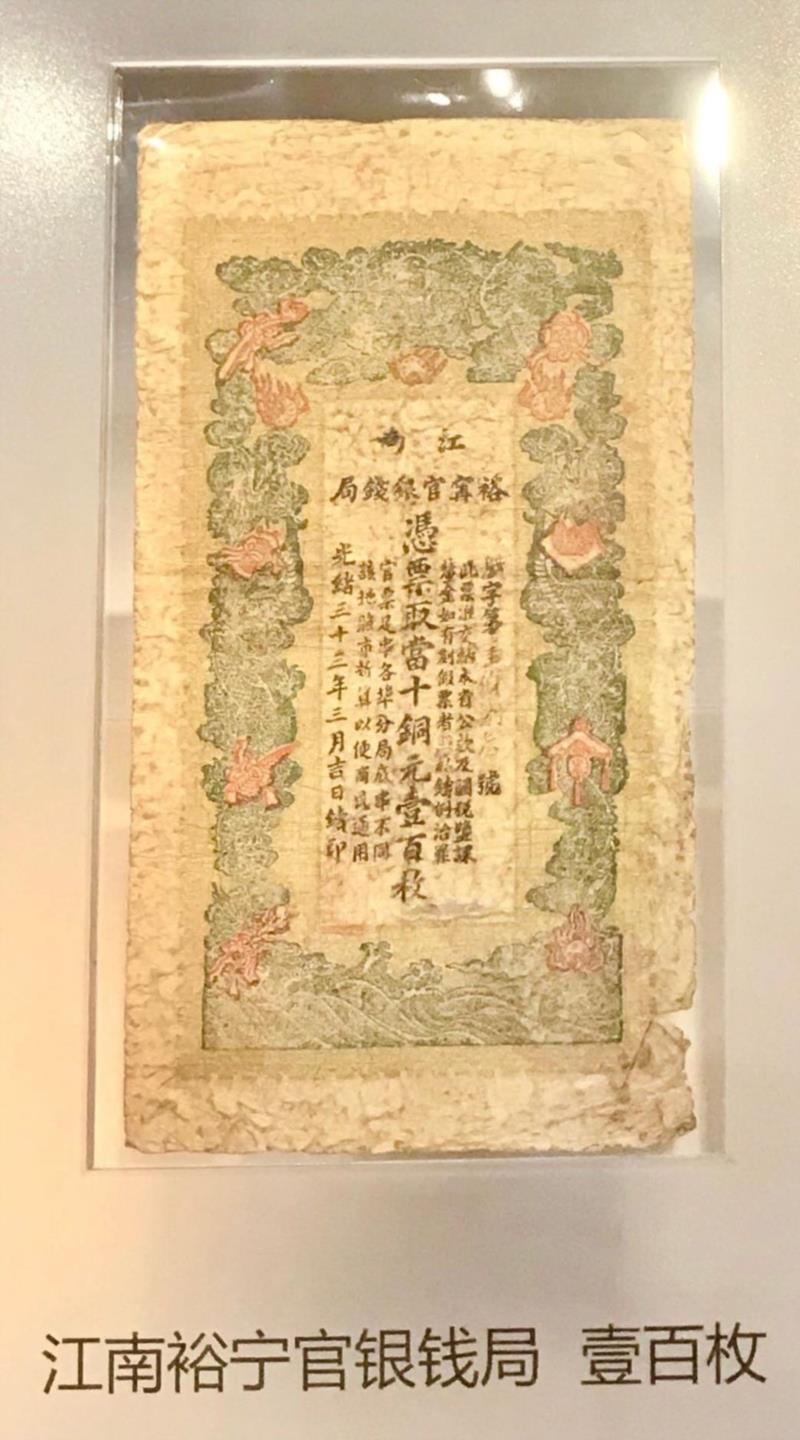 江南
裕甯官銀錢局
字第 號
此票準交納本省公款及關稅鹽課
釐金如有刻假票者 私鑄例治罪
憑票取當十銅元壹百枚
官票足串各埠分局底串不同
該地隨市折算以便商民通用
光緒三十三年三月吉日續印
江南裕宁官银钱局 壹百枚